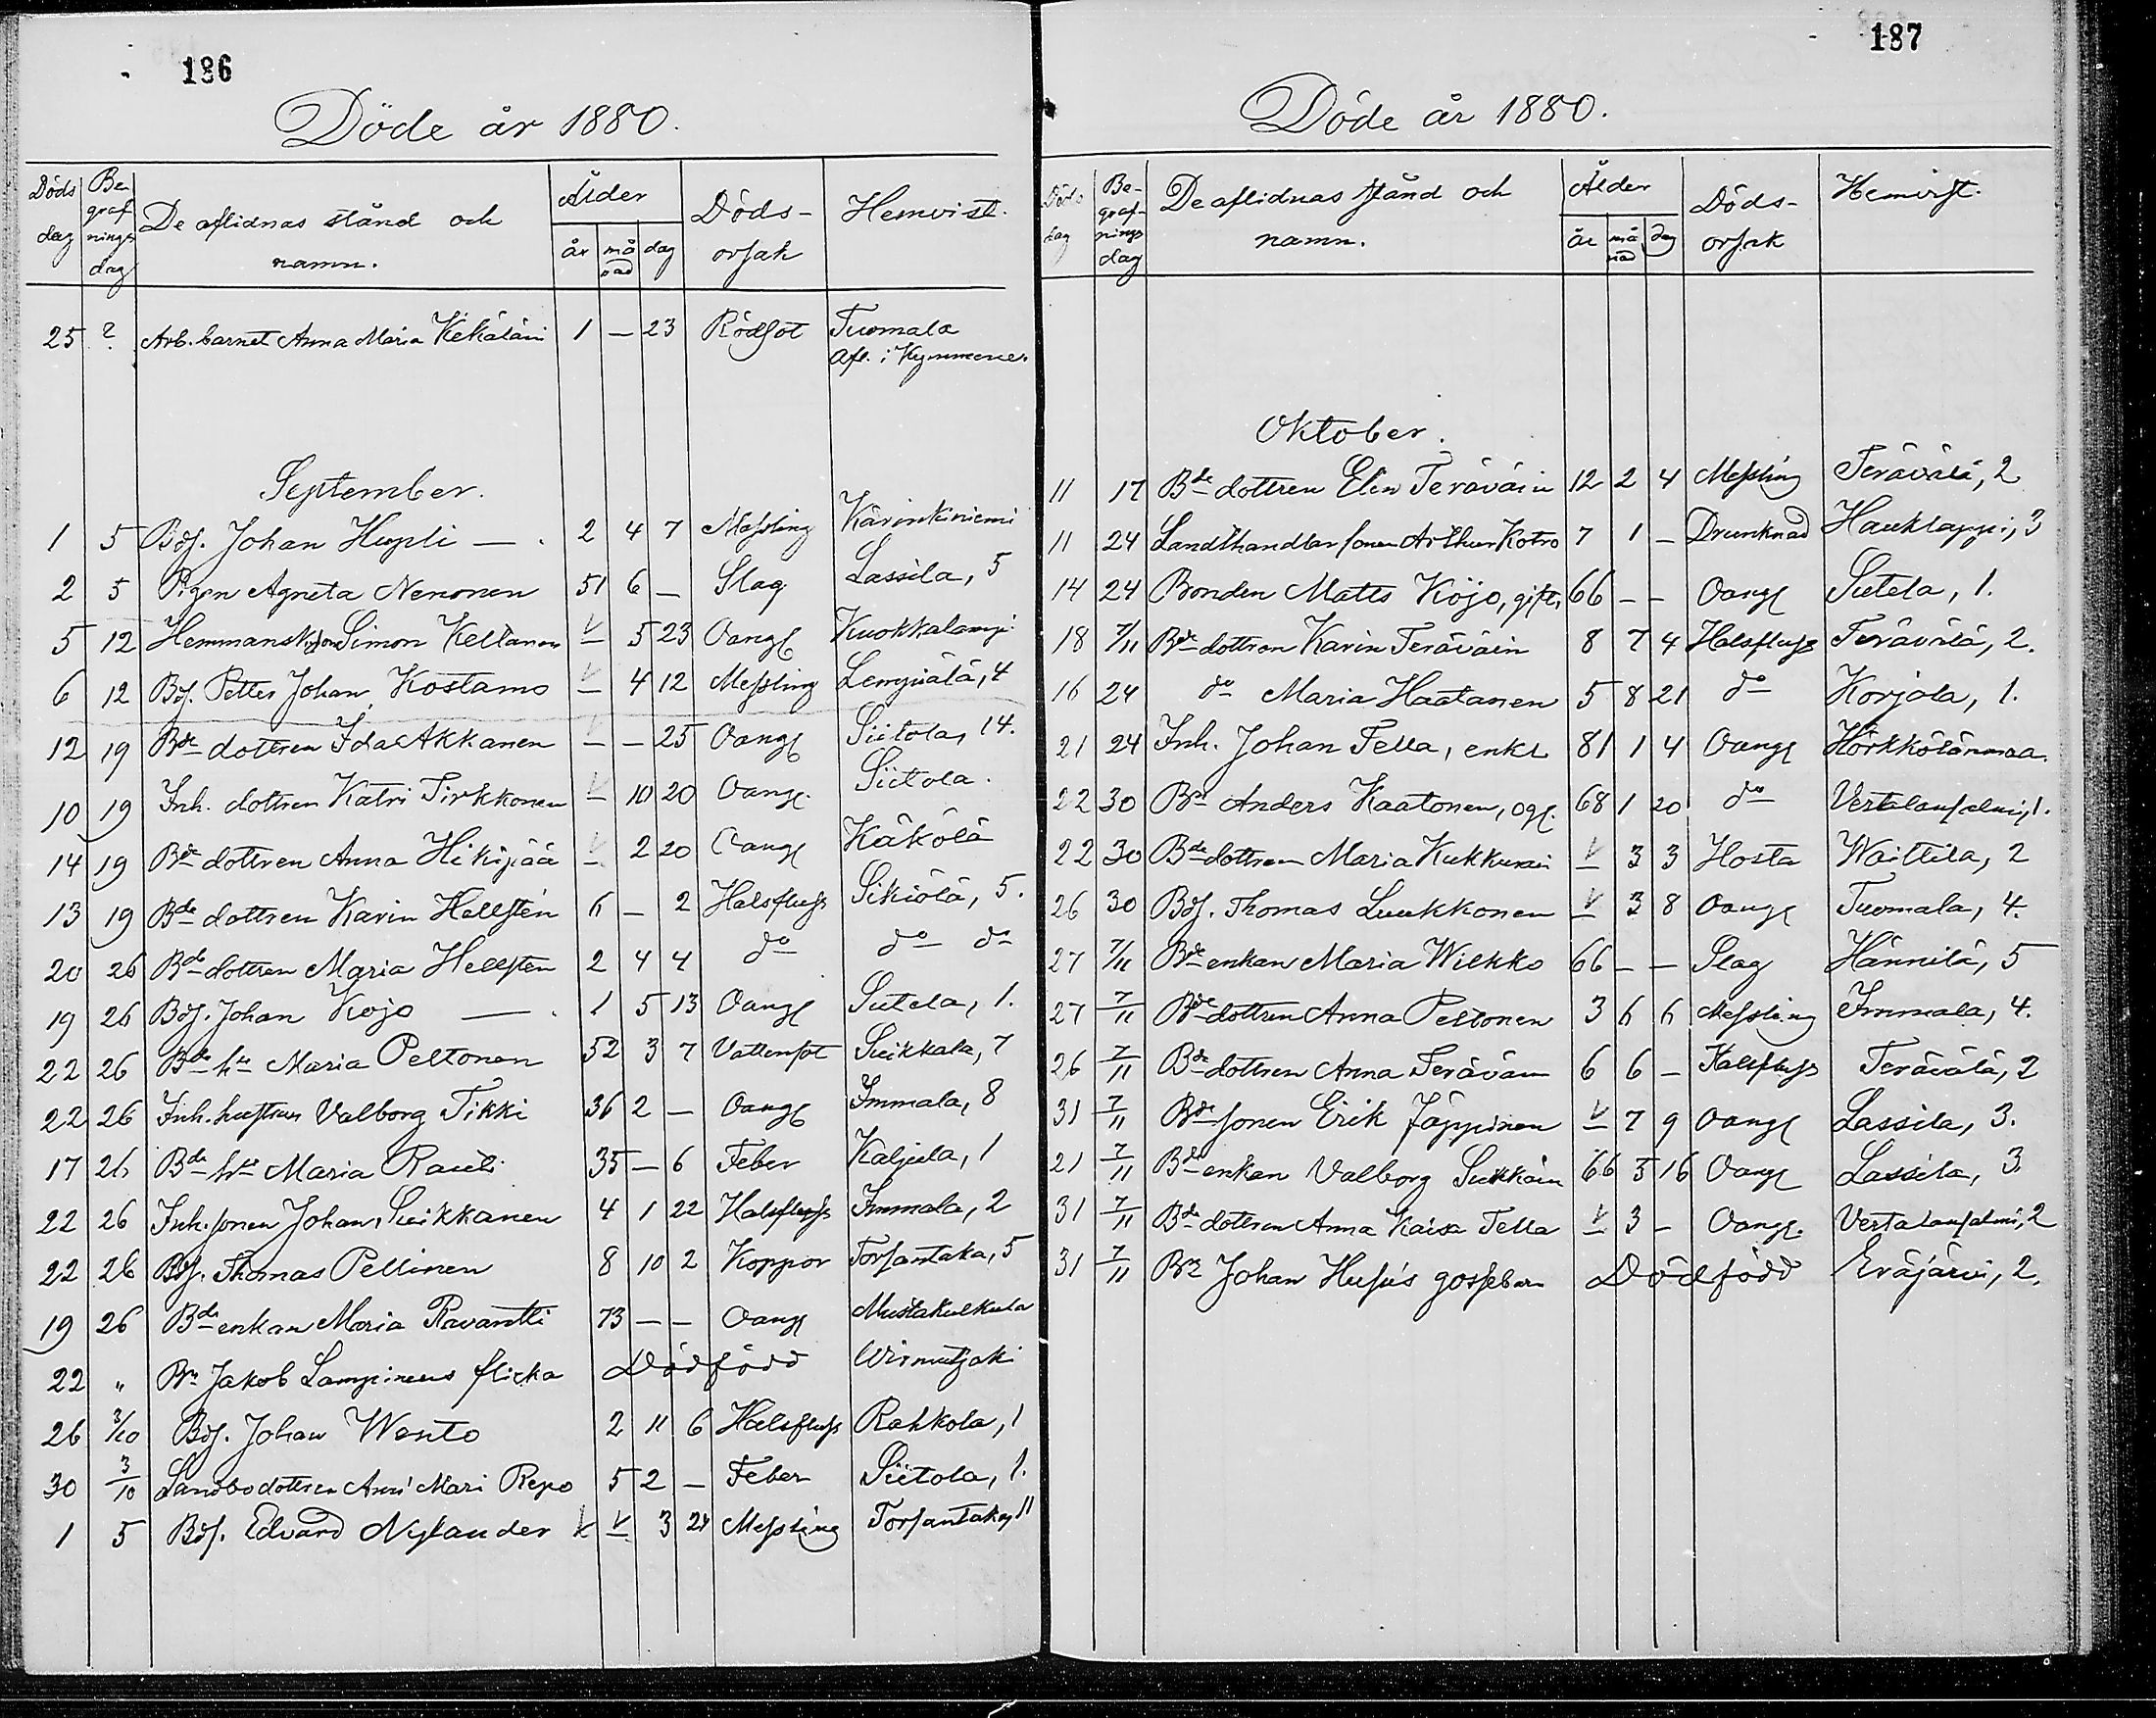 186
Döde år 1880.
Döds dag | Begrafnings dag | De aflidnas stånd och namn. | Ålder år månad dag | Döds-orsak | Hemvist.
25 ? Arb. barnet Anna Maria Kekäläin 1 — 23 Rödsot Tuomala
Afl. i Kymmene.
September.
1 5 Bds. Johan Hupli — 2 4 7 Messling Karinkiniemi
2 5 Pigan Agneta Nenonen 51 6 — Slag Lassila, 5
5 12 Simon Kellanen — 5 23 Oang. Kuokkalampi
6 12 Bds. Petter Johan Kostamo — 4 12 Messling Lempiälä, 4
12 19 Bde dottren Ida Akkanen — — 25 Oang. Siitola, 14.
10 19 Inh. dottren Katri Tirkkonen — 10 20 Oang. Siitola.
14 19 Bde dottren Anna Hikipää — 2 20 Oang. Käkölä
13 19 Bde dottren Karin Hellsten 6 — 2 Halsfluss Sikiölä, 5.
20 26 Bde dottren Maria Hellsten 2 4 4 do do do
19 26 Bds. Johan Kojo — 1 5 13 Oang. Sutela, 1.
22 26 Bde hu Maria Peltonen 52 3 7 Vattensot Suikkala, 7
22 26 Inh. hustrun Valborg Tikki 36 2 — Oang. Immala, 8
17 26 Bde hu Maria Rauli 35 — 6 Feber Kaljula, 1
22 26 Inh. sonen Johan Suikkanen 4 1 22 Halsfluss Immala, 2
22 26 Bds. Thomas Pellinen 8 10 2 Koppor Torsantaka, 5
19 26 Bde enkan Maria Ravantti 73 — — Oang. Mustakulkula
22 " Bn Jakob Lampinens flicka Dödfödd
26 3/10 Bds. Johan Wento 2 11 6 Halsfluss Rahkola, 1
30 3/10 Landbodottren Anni Mari Repo 5 2 — Feber Siitola, 1.
1 5 Bds. Edvard Nylander — 3 24 Messling Torsantaka, 11
187
Döde år 1880.
Döds dag | Begrafnings dag | De aflidnas stånd och namn. | Ålder år månad dag | Döds-orsak | Hemvist.
Oktober.
11 17 Bde dottren Elin Teräväin 12 2 4 Messling Terävälä, 2
11 24 Landthandlarsonen Arthur Kotro 7 1 — Drunknad Hauklappi, 3
14 24 Bonden Matts Köjo, gift, 66 — — Oang. Sutela, 1.
18 7/11 Bde dottren Karin Teräväin 8 7 4 Halsfluss Terävälä, 2.
16 24 do Maria Haatanen 5 8 21 do Korjola, 1.
21 24 Inh. Johan Tella, enkl 81 1 4 Oang. Hörkkölänmaa.
22 30 Bn Anders Kaatonen, og. 68 1 20 do
22 30 Bde dottren Maria Kukkurain — 3 3 Hosta Waittila, 2
26 30 Bds. Thomas Luukkonen — 3 8 Oang. Tuomala, 4.
27 7/11 Bde enkan Maria Wilkko 66 — — Slag Hännilä, 5
27 7/11 Bde dottren Anna Peltonen 3 6 6 Messling Immala, 4.
26 7/11 Bde dottren Anna Teräväin 6 6 — Halsfluss Terävälä, 2
31 7/11 Bde sonen Erik Jäppinen — 7 9 Oang. Lassila, 3.
21 7/11 Bde enkan Valborg Sukkain 66 5 16 Oang. Lassila, 3
31 7/11 Bde dottren Anna Kaisa Tella — 3 — Oang.
31 7/11 Bn Johan Husu's gossebarn Dödfödd Eräjärvi, 2.